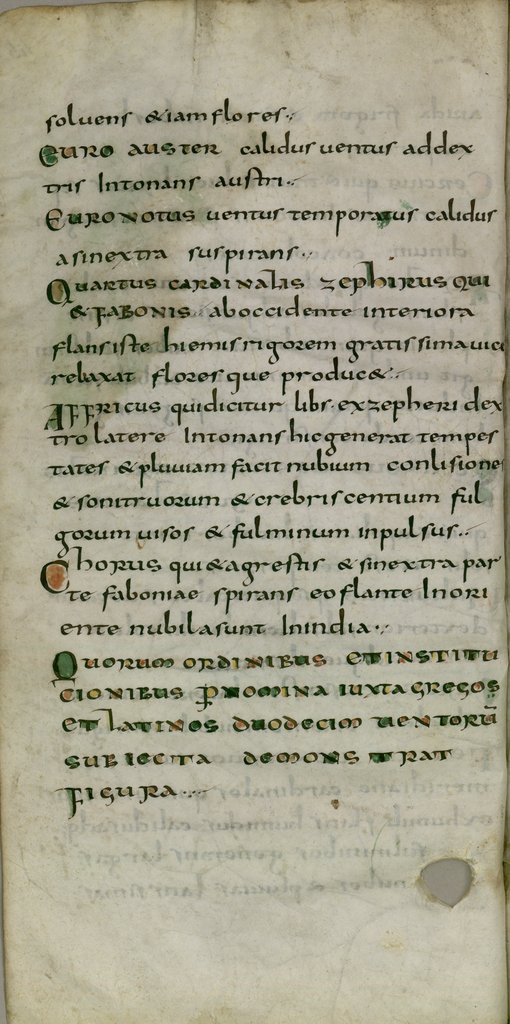 soluens & iam flores.,
Euro auster calidus uentus ad dex
tris Intonans austri.,
Euronotus uentus temporatus calidus
a sinextra suspirans.,
Quartus cardinalis zephirus qui
& fabonis aboccidente interiora
flans iste hiemis rigorem gratissima uice
relaxat flores que produc&.,
Affricus qui dicitur libs. ex zepheri dex
tro latere Intonans hic generat tempes
tates & pluuiam facit nubium conlisiones
& sonitruorum & crebriscentium ful
gorum uisos & fulminum inpulsus.,
Chorus qui & agrestis & sinextra par
te faboniae spirans eo flante In ori
ente nubila sunt In india.,
Quorum ordinibus et institu
cionibus p nomina iuxta gregos
et latinos duodecim uentorū
subiecta demonstrat
figura.,